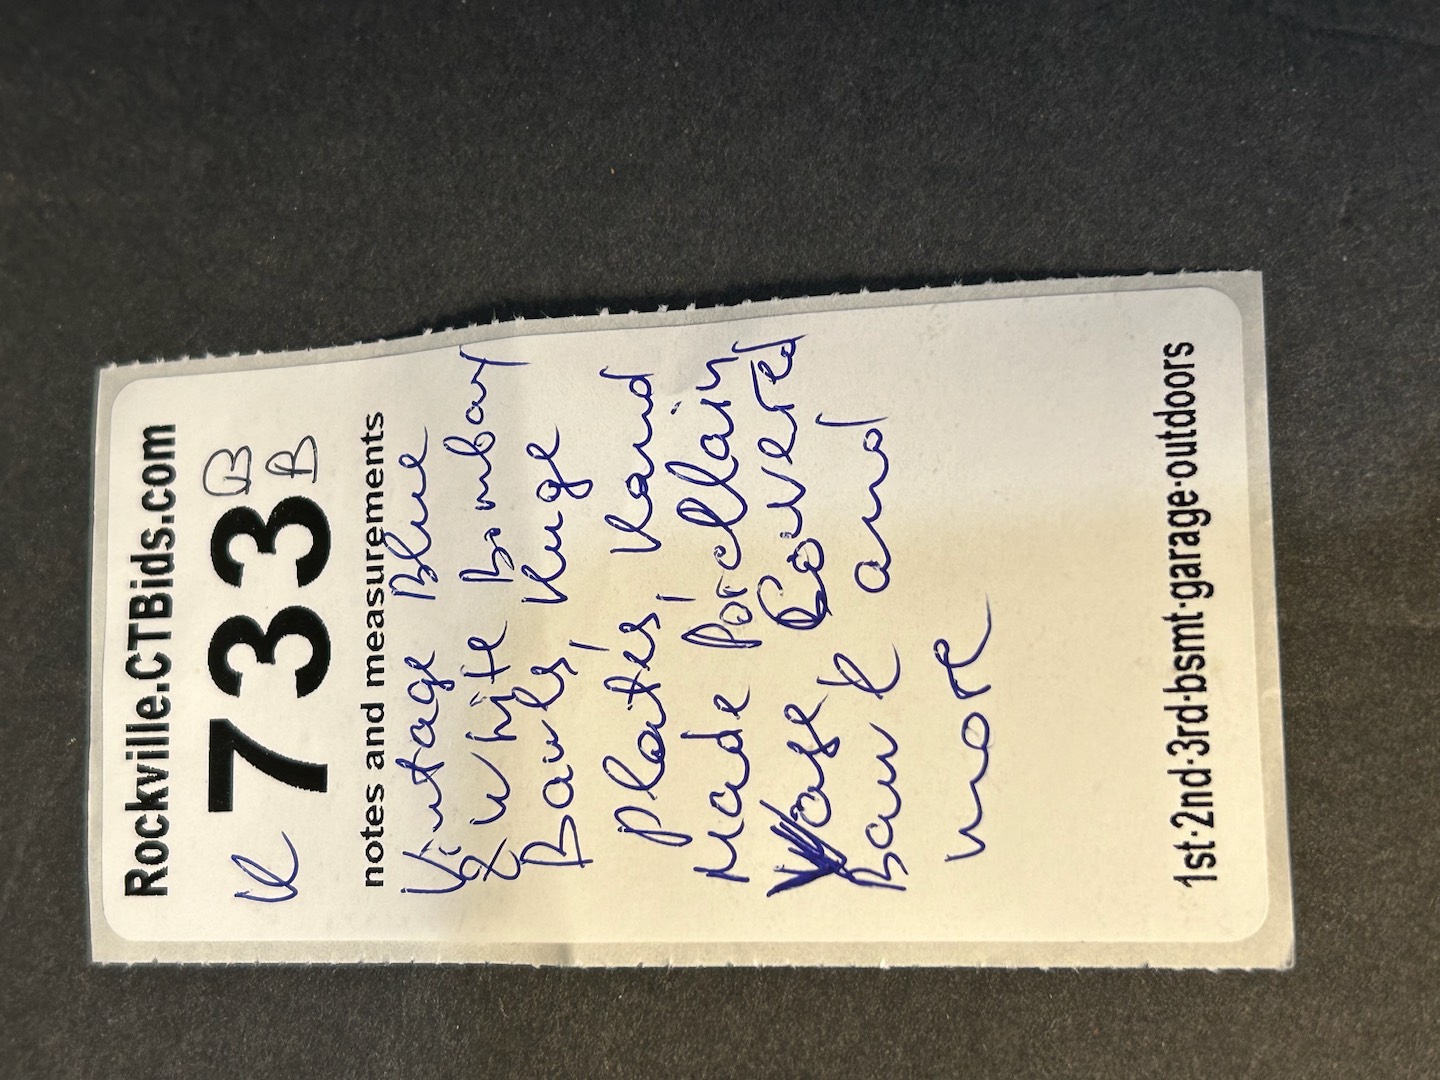 Rockville.CTBids.com
733 B
B
notes and measurements
Vintage Blue
& White Bombay
Bowls, Huge
plates, Hand
Made Porcllain
Vase Covered
Bowl and
more
1st·2nd·3rd·bsmt·garage·outdoors